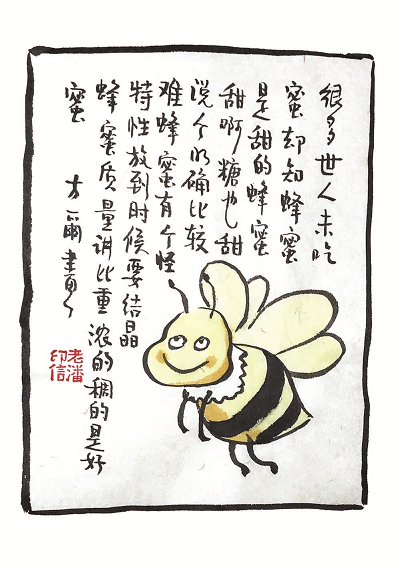 很多世人未吃
蜜却知蜂蜜
是甜的蜂蜜
甜啊糖也甜
说个明确比较
难蜂蜜有个怪
特性放到时候要结晶
蜂蜜质量讲比重浓的稠的是好
蜜
老潘
印信